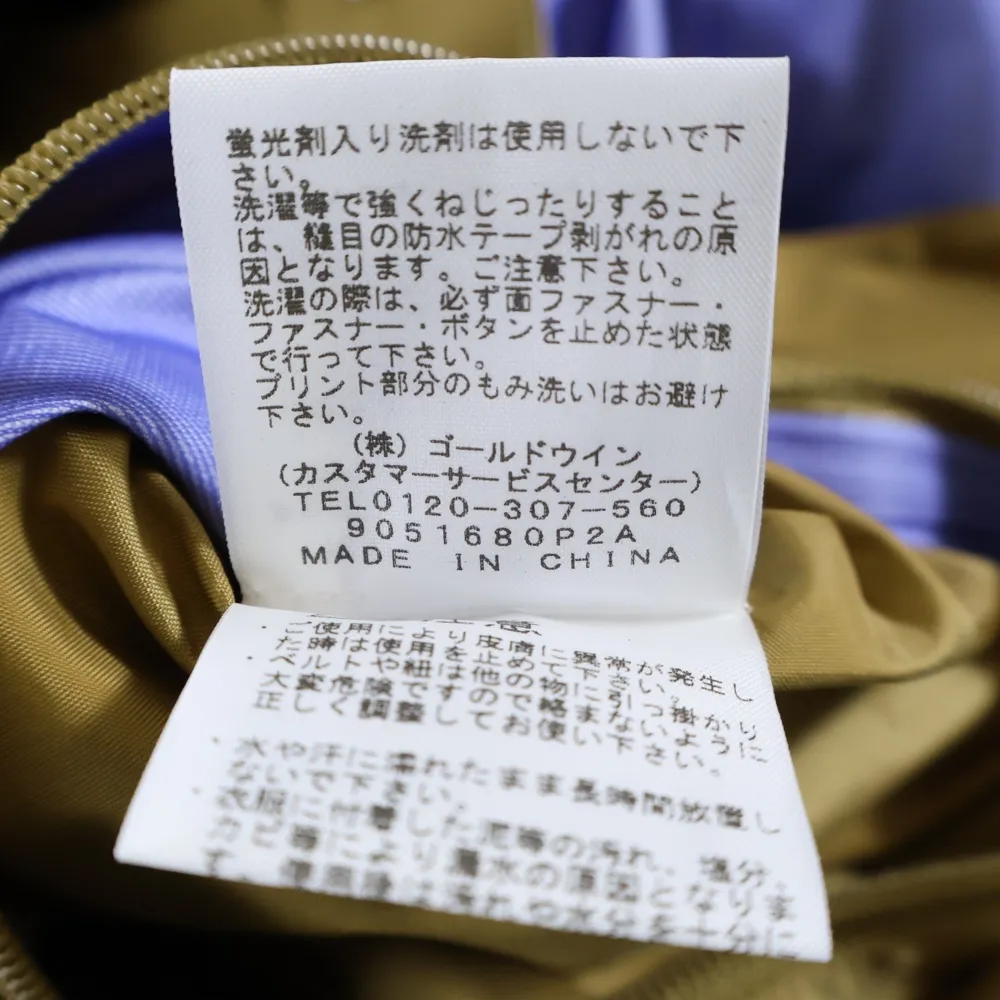 蛍光剤入り洗剤は使用しないで下
さい。
洗濯等で強くねじったりすること
は、縫目の防水テープ剥がれの原
因となります。ご注意下さい。
洗濯の際は、必ず面ファスナー・
ファスナー・ボタンを止めた状態
で行って下さい。
プリント部分のもみ洗いはお避け
下さい。
(株) ゴールドウイン
(カスタマーサービスセンター)
TEL0120-307-560
9051680P2A
MADE IN CHINA
注意
・ご使用により皮膚に異常が発生し
た時は使用を止めて下さい。
・ベルトや紐は他の物に引っ掛かり
大変危険ですので絡まないように
正しく調整してお使い下さい。
・水や汗に濡れたまま長時間放置し
ないで下さい。
・衣服に付着した泥等の汚れ、塩分、
カビ等により漏水の原因となりま
す。使用後は汚れや水分を十分に